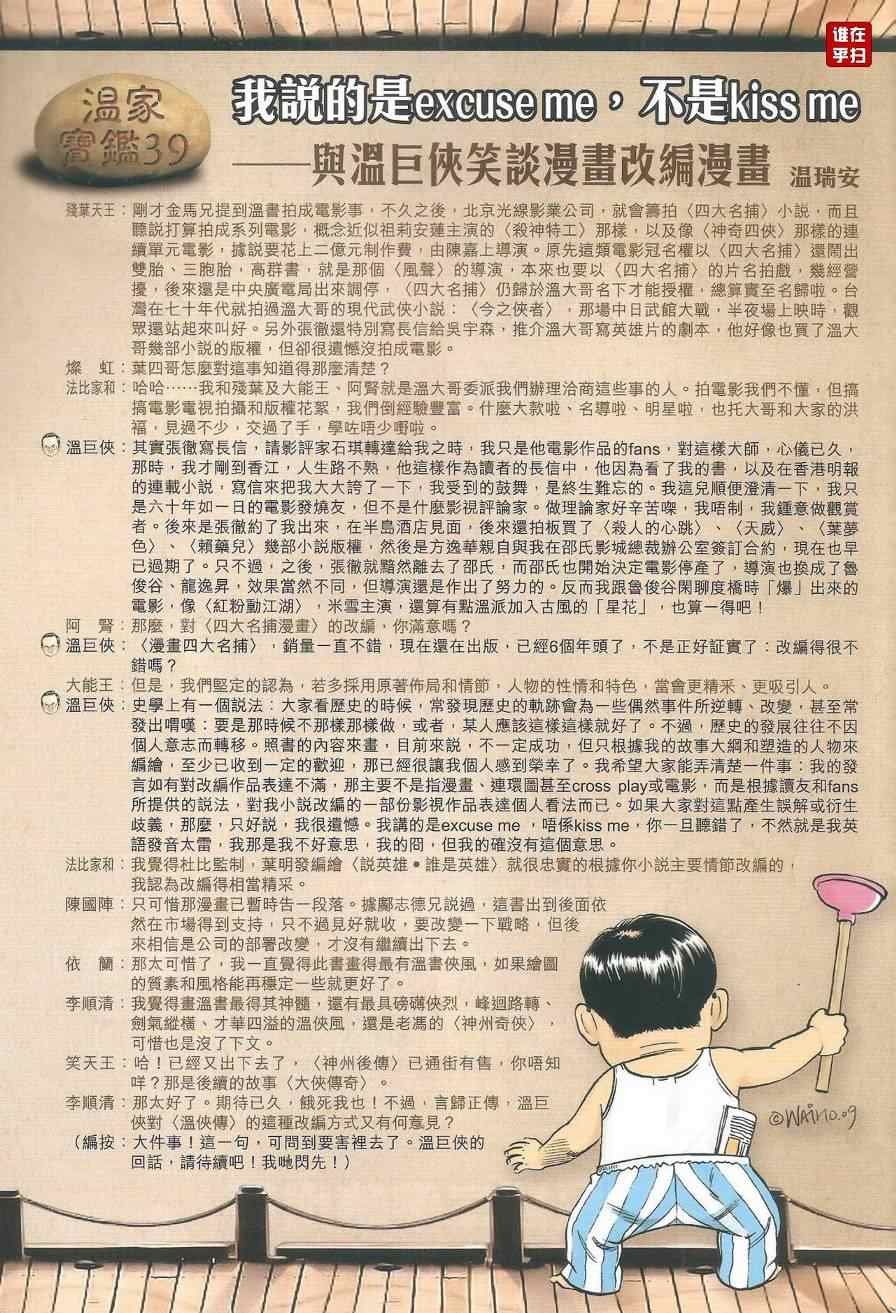 谁在
乎扫
温家
寶鑑39
我說的是excuse me，不是kiss me
——與溫巨俠笑談漫畫改編漫畫 温瑞安
殘葉天王：剛才金馬兄提到溫書拍成電影事，不久之後，北京光線影業公司，就會籌拍〈四大名捕〉小説，而且
聽説打算拍成系列電影，概念近似祖莉安蓮主演的〈殺神特工〉那樣，以及像〈神奇四俠〉那樣的連
續單元電影，據説要花上二億元制作費，由陳嘉上導演。原先這類電影冠名權以〈四大名捕〉還鬧出
雙胎、三胞胎，高群書，就是那個〈風聲〉的導演，本來也要以〈四大名捕〉的片名拍戲，幾經營
擾，後來還是中央廣電局出來調停，〈四大名捕〉仍歸於溫大哥名下才能授權，總算實至名歸啦。台
灣在七十年代就拍過溫大哥的現代武俠小説：〈今之俠者〉，那場中日武館大戰，半夜場上映時，觀
眾還站起來叫好。另外張徹還特別寫長信給吳宇森，推介溫大哥寫英雄片的劇本，他好像也買了溫大
哥幾部小説的版權，但卻很遺憾沒拍成電影。
燦　虹：葉四哥怎麼對這事知道得那麼清楚？
法比家和：哈哈⋯⋯我和殘葉及大能王、阿腎就是溫大哥委派我們辦理洽商這些事的人。拍電影我們不懂，但搞
搞電影電視拍攝和版權花絮，我們倒經驗豐富。什麼大款啦、名導啦、明星啦，也托大哥和大家的洪
福，見過不少，交過了手，學咗唔少嘢啦。
溫巨俠：其實張徹寫長信，請影評家石琪轉達給我之時，我只是他電影作品的fans，對這樣大師，心儀已久，
那時，我才剛到香江，人生路不熟，他這樣作為讀者的長信中，他因為看了我的書，以及在香港明報
的連載小説，寫信來把我大大誇了一下，我受到的鼓舞，是終生難忘的。我這兒順便澄清一下，我只
是六十年如一日的電影發燒友，但不是什麼影視評論家。做理論家好辛苦㗎，我唔制，我鍾意做觀賞
者。後來是張徹約了我出來，在半島酒店見面，後來還拍板買了〈殺人的心跳〉、〈天威〉、〈葉夢
色〉、〈賴藥兒〉幾部小説版權，然後是方逸華親自與我在邵氏影城總裁辦公室簽訂合約，現在也早
已過期了。只不過，之後，張徹就黯然離去了邵氏，而邵氏也開始決定電影停產了，導演也換成了魯
俊谷、龍逸昇，效果當然不同，但導演還是作出了努力的。反而我跟魯俊谷閑聊度橋時「爆」出來的
電影，像〈紅粉動江湖〉，米雪主演，還算有點溫派加入古風的「星花」，也算一得吧！
阿　腎：那麼，對〈四大名捕漫畫〉的改編，你滿意嗎？
溫巨俠：〈漫畫四大名捕〉，銷量一直不錯，現在還在出版，已經6個年頭了，不是正好証實了：改編得很不
錯嗎？
大能王：但是，我們堅定的認為，若多採用原著佈局和情節，人物的性情和特色，當會更精釆、更吸引人。
溫巨俠：史學上有一個説法：大家看歷史的時候，常發現歷史的軌跡會為一些偶然事件所逆轉、改變，甚至常
發出喟嘆：要是那時候不那樣那樣做，或者，某人應該這樣這樣就好了。不過，歷史的發展往往不因
個人意志而轉移。照書的內容來畫，目前來説，不一定成功，但只根據我的故事大綱和塑造的人物來
編繪，至少已收到一定的歡迎，那已經很讓我個人感到榮幸了。我希望大家能弄清楚一件事：我的發
言如有對改編作品表達不滿，那主要不是指漫畫、連環圖甚至cross play或電影，而是根據讀友和fans
所提供的説法，對我小説改編的一部份影視作品表達個人看法而已。如果大家對這點產生誤解或衍生
歧義，那麼，只好説，我很遺憾。我講的是excuse me ，唔係kiss me，你一旦聽錯了，不然就是我英
語發音太雷，我那是我不好意思，我的囧，但我的確沒有這個意思。
法比家和：我覺得杜比監制，葉明發編繪〈説英雄•誰是英雄〉就很忠實的根據你小説主要情節改編的，
我認為改編得相當精采。
陳國陣：只可惜那漫畫已暫時告一段落。據鄺志德兄説過，這書出到後面依
然在市場得到支持，只不過見好就收，要改變一下戰略，但後
來相信是公司的部署改變，才沒有繼續出下去。
依　蘭：那太可惜了，我一直覺得此書畫得最有溫書俠風，如果繪圖
的質素和風格能再穩定一些就更好了。
李順清：我覺得畫溫書最得其神髓，還有最具磅礴俠烈，峰迴路轉、
劍氣縱橫、才華四溢的溫俠風，還是老馮的〈神州奇俠〉，
可惜也是沒了下文。
笑天王：哈！已經又出下去了，〈神州後傳〉已通街有售，你唔知
咩？那是後續的故事〈大俠傳奇〉。
李順清：那太好了。期待已久，餓死我也！不過，言歸正傳，溫巨
俠對〈溫俠傳〉的這種改編方式又有何意見？
（編按：大件事！這一句，可問到要害裡去了。溫巨俠的
回話，請待續吧！我哋閃先！）
©WAIMO.09